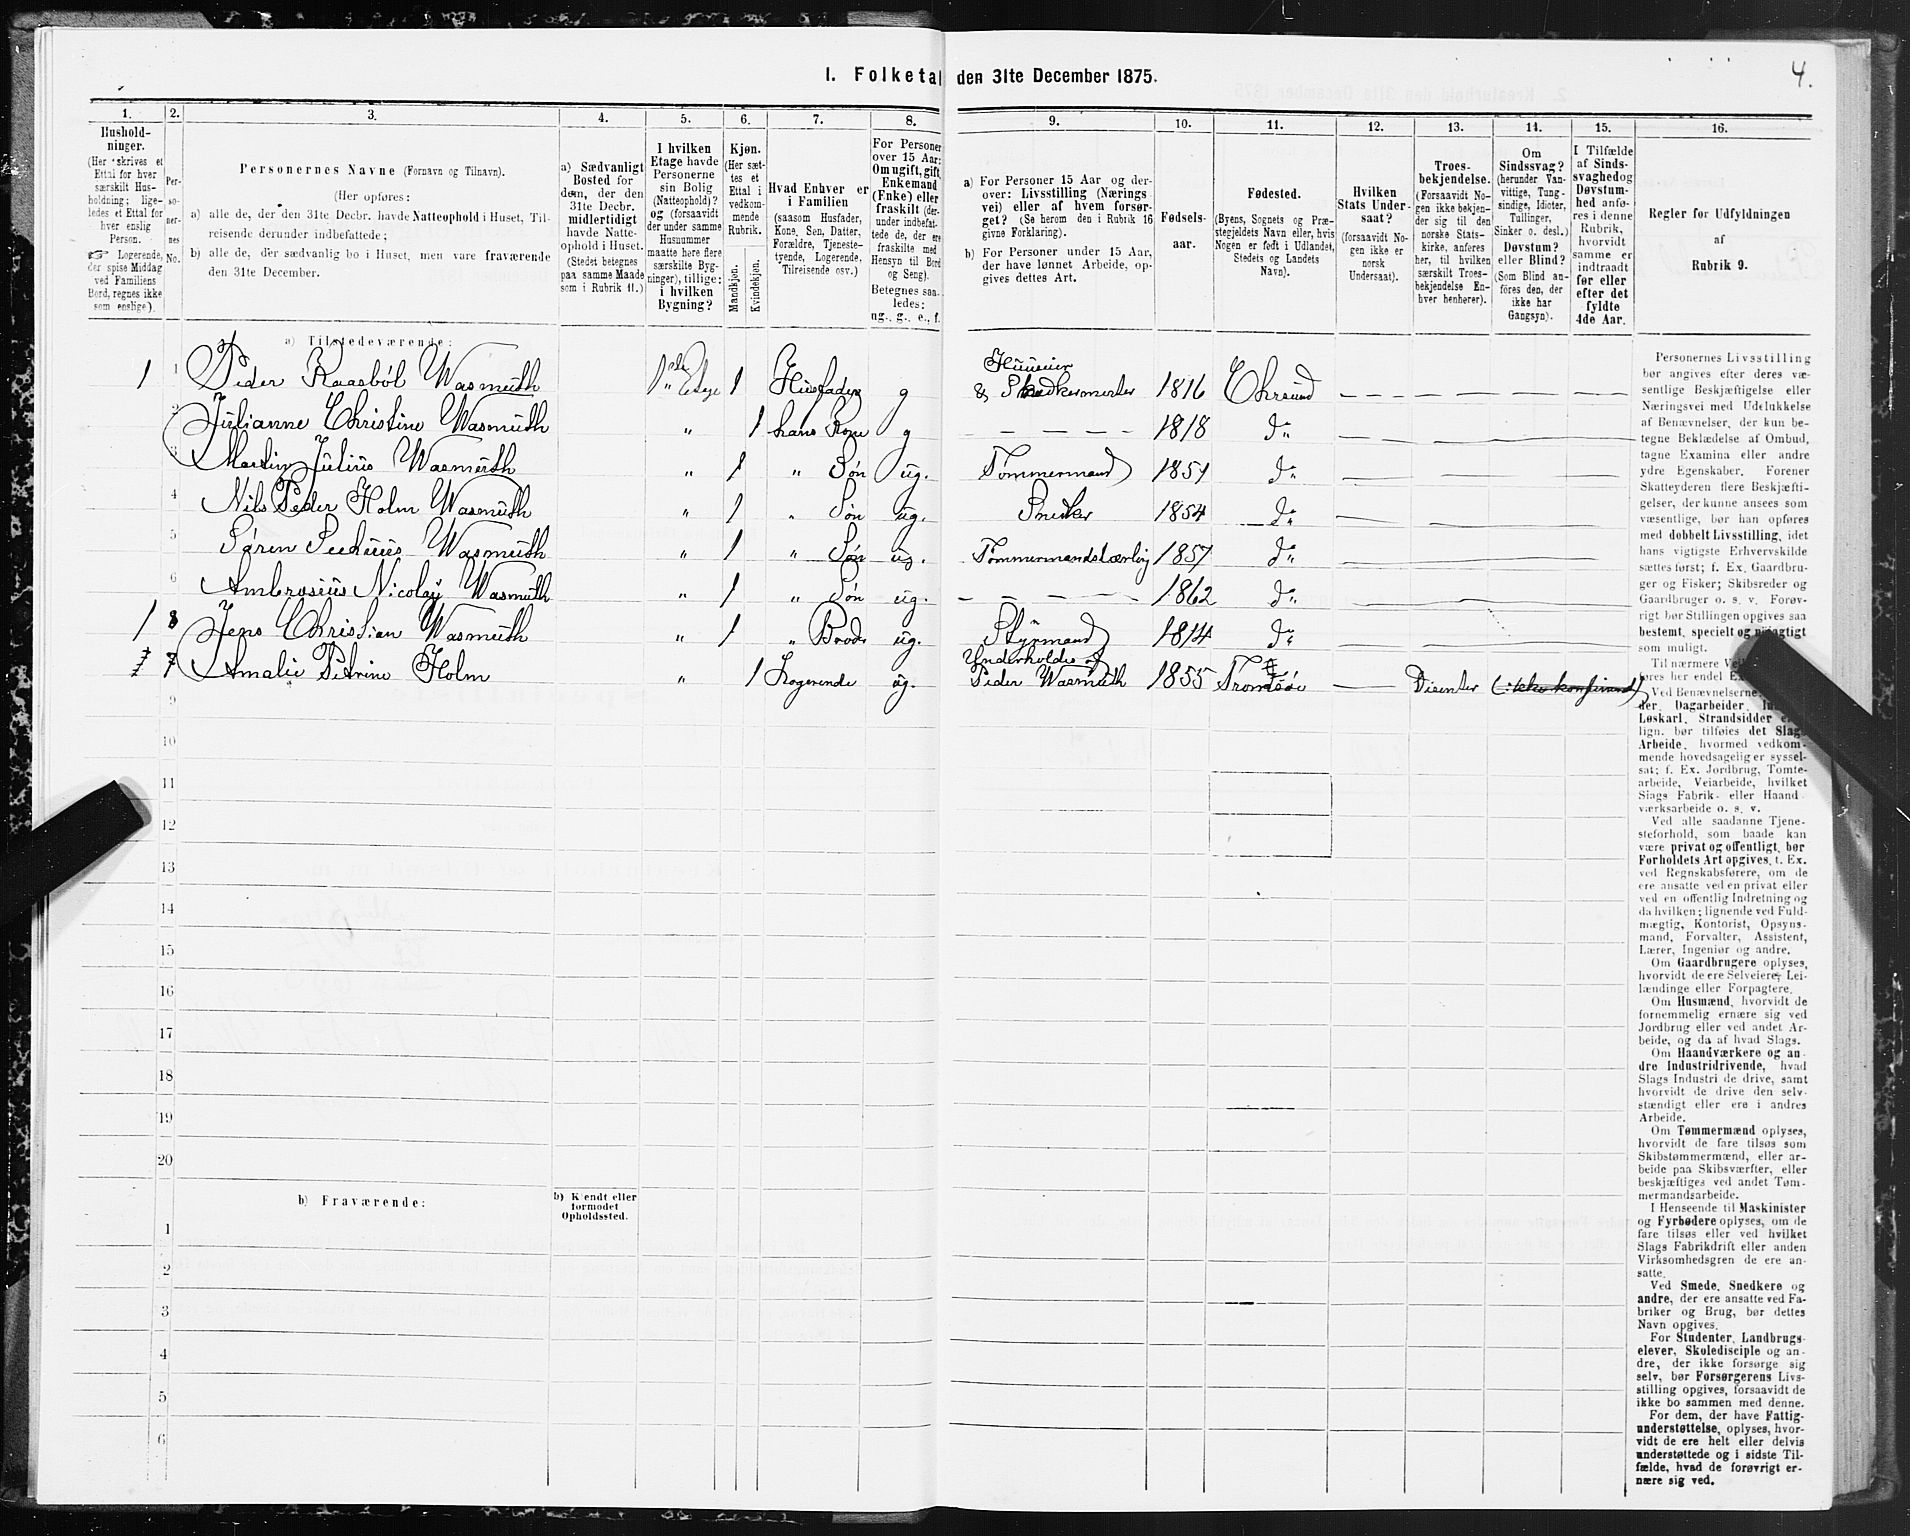 I. Folketal den 31te December 1875.
4.
1. 2. 3. 4. 5. 6. 7. 8. 9. 10. 11. 12. 13. 14. 15. 16.
Hushold-
ninger.
(Her skrives et
Ettal for hver
særskilt Hus-
holdning; lige-
ledes et Ettal for
hver enslig
Person.
☞ Logerende,
der spise Middag
ved Familiens
Bord, regnes ikke
som enslige).
Per-
so-
ner-
nes
No.
Personernes Navne (Fornavn og Tilnavn).
(Her opføres:
a) alle de, der den 31te Decbr. havde Natteophold i Huset, Til-
reisende derunder indbefattede;
b) alle de, der sædvanlig bo i Huset, men vare fraværende
den 31te December.
a) Sædvanligt
Bosted for
dem, der den
31te Decbr.
midlertidigt
havde Natte-
ophold i Huset.
(Stedet betegnes
paa samme Maade
som i Rubrik 11.)
I hvilken
Etage havde
Personerne
sin Bolig
(Natteophold)?
og (forsaavidt
der under samme
Husnummer
maatte høre flere
særskilte Byg-
ninger), tillige:
i hvilken
Bygning?
Kjøn.
(Her sæt-
tes et
Ettal i
vedkom-
mende
Rubrik.
Mandkjøn.
Kvindekjøn.
Hvad Enhver er
i Familien
(saasom Husfader,
Kone, Søn, Datter,
Forældre, Tjeneste-
tyende, Logerende,
Tilreisende osv.)
For Personer
over 15 Aar:
Om ugift, gift,
Enkemand
(Enke) eller
fraskilt (der-
under indbefat-
tede de, der ere
fraskilte med
Hensyn til Bord
og Seng).
Betegnes saa-
ledes:
ug., g., e., f.
a) For Personer 15 Aar og der-
over: Livsstilling (Nærings
vei) eller af hvem forsør-
get? (Se herom den i Rubrik 16
givne Forklaring).
b) For Personer under 15 Aar,
der have lønnet Arbeide, op-
gives dettes Art.
Fødsels-
aar.
Fødested.
(Byens, Sognets og Præ-
stegjeldets Navn eller, hvis
Nogen er født i Udlandet,
Stedets og Landets
Navn).
Hvilken
Stats Under-
saat?
(forsaavidt No-
gen ikke er
norsk
Undersaat).
Troes-
bekjendelse.
(Forsaavidt No-
gen ikke bekjen-
der sig til den
norske Stats-
kirke, anføres
her, til hvilken
særskilt Troes-
bekjendelse En-
hver henhører).
Om
Sindssvag?
(herunder Van-
vittige, Tung-
sindige, Idioter,
Tullinger,
Sinker o. desl.)
Døvstum?
eller Blind?
(Som Blind an-
føres den, der
ikke har
Gangsyn).
I Tilfælde
af Sinds-
svaghed og
Døvstum-
hed anfø-
res i denne
Rubrik,
hvorvidt
samme er
indtraadt
før eller
efter det
fyldte
4de Aar.
Regler for Udfyldningen
af
Rubrik 9.
a) Tilstedeværende:
1 1 Peder Raasböl Wasmuth 1ste Etage 1 Husfader g Huuseier & Snedkermester 1816 Ekrsund
2 Julianne Christine Wasmuth " 1 hans Kone g 1818 do
3 Martin Julius Wasmuth " 1 " Søn ug. Tømmermand 1851 do
4 Nils Peder Holm Wasmuth " 1 " Søn ug. Snedker 1854 do
5 Søren Seehuus Wasmuth " 1 " Søn ug. Tømmermandslærling 1857 do
6 Ambrosius Nicolay Wasmuth " 1 " Søn ug. 1862 do
1 8 Jens Christian Wasmuth " 1 " Broder ug. Styrmand 1814 do
7 Amalie Petrine Holm " 1 Logerende ug. Underholdes af Peder Wasmuth 1855 Tromsøe Disenter (ikke konfirmeret)
9
10
11
12
13
14
15
16
17
18
19
20
b) Fraværende:
b) Kjendt eller
formodet
Opholdssted.
1
2
3
4
5
6
Personernes Livsstilling
bør angives efter deres væ-
sentlige Beskjæftigelse eller
Næringsvei med Udelukkelse
af Benævnelser, der kun be-
tegne Beklædelse af Ombud,
tagne Examina eller andre
ydre Egenskaber. Forener
Skatteyderen flere Beskjæfti-
gelser, der kunne ansees som
væsentlige, bør han opføres
med dobbelt Livsstilling, idet
hans vigtigste Erhvervskilde
sættes først; f. Ex. Gaardbru-
ger og Fisker; Skibsreder og
Gaardbruger o. s. v. Forøv-
rigt bør Stillingen opgives saa
bestemt, specielt og nøiagtigt
som muligt.
Til nærmere
føres her endel
Ved Benævnelserne
der, Dagarbeider,
Løskarl, Strandsidder
lign. bør tilføies det Slags
Arbeide, hvormed vedkom-
mende hovedsagelig er syssel-
sat; f. Ex. Jordbrug, Tomte-
arbeide, Veiarbeide, hvilket
Slags Fabrik- eller Haand-
værksarbeide o. s. v.
Ved alle saadanne Tjene-
steforhold, som baade kan
være privat og offentligt, bør
Forholdets Art opgives, t. Ex.
ved Regnskabsførere, om de
ere ansatte ved en privat eller
ved en offentlig Indretning og
da hvilken; lignende ved Fuld-
mægtig, Kontorist, Opsyns-
mand, Forvalter, Assistent,
Lærer, Ingeniør og andre.
Om Gaardbrugere oplyses,
hvorvidt de ere Selveiere, Lei-
lændinge eller Forpagtere.
Om Husmænd, hvorvidt de
fornemmelig ernære sig ved
Jordbrug eller ved andet Ar-
beide, og da af hvad Slags.
Om Haandværkere og an-
dre Industridrivende, hvad
Slags Industri de drive, samt
hvorvidt de drive den selv-
stændigt eller ere i andres
Arbeide.
Om Tømmermænd oplyses,
hvorvidt de fare tilsøs som
Skibstømmermænd, eller ar-
beide paa Skibsværfter, eller
beskjæftiges ved andet Tøm-
mermandsarbeide.
I Henseende til Maskinister
og Fyrbødere oplyses, om de
fare tilsøs eller ved hvilket
Slags Fabrikdrift eller anden
Virksomhedsgren de ere an-
satte.
Ved Smede, Snedkere og
andre, der ere ansatte ved Fa-
briker og Brug, bør dettes
Navn opgives.
For Studenter, Landbrugs-
elever, Skoledisciple og an-
dre, der ikke forsørge sig
selv, bør Forsørgerens Livs-
stilling opgives, forsaavidt de
ikke bo sammen med denne.
For dem, der have Fattig-
understøttelse, oplyses, hvor-
vidt de ere helt eller delvis
understøttede og i sidste Til-
fælde, hvad de forøvrigt er-
nære sig ved.